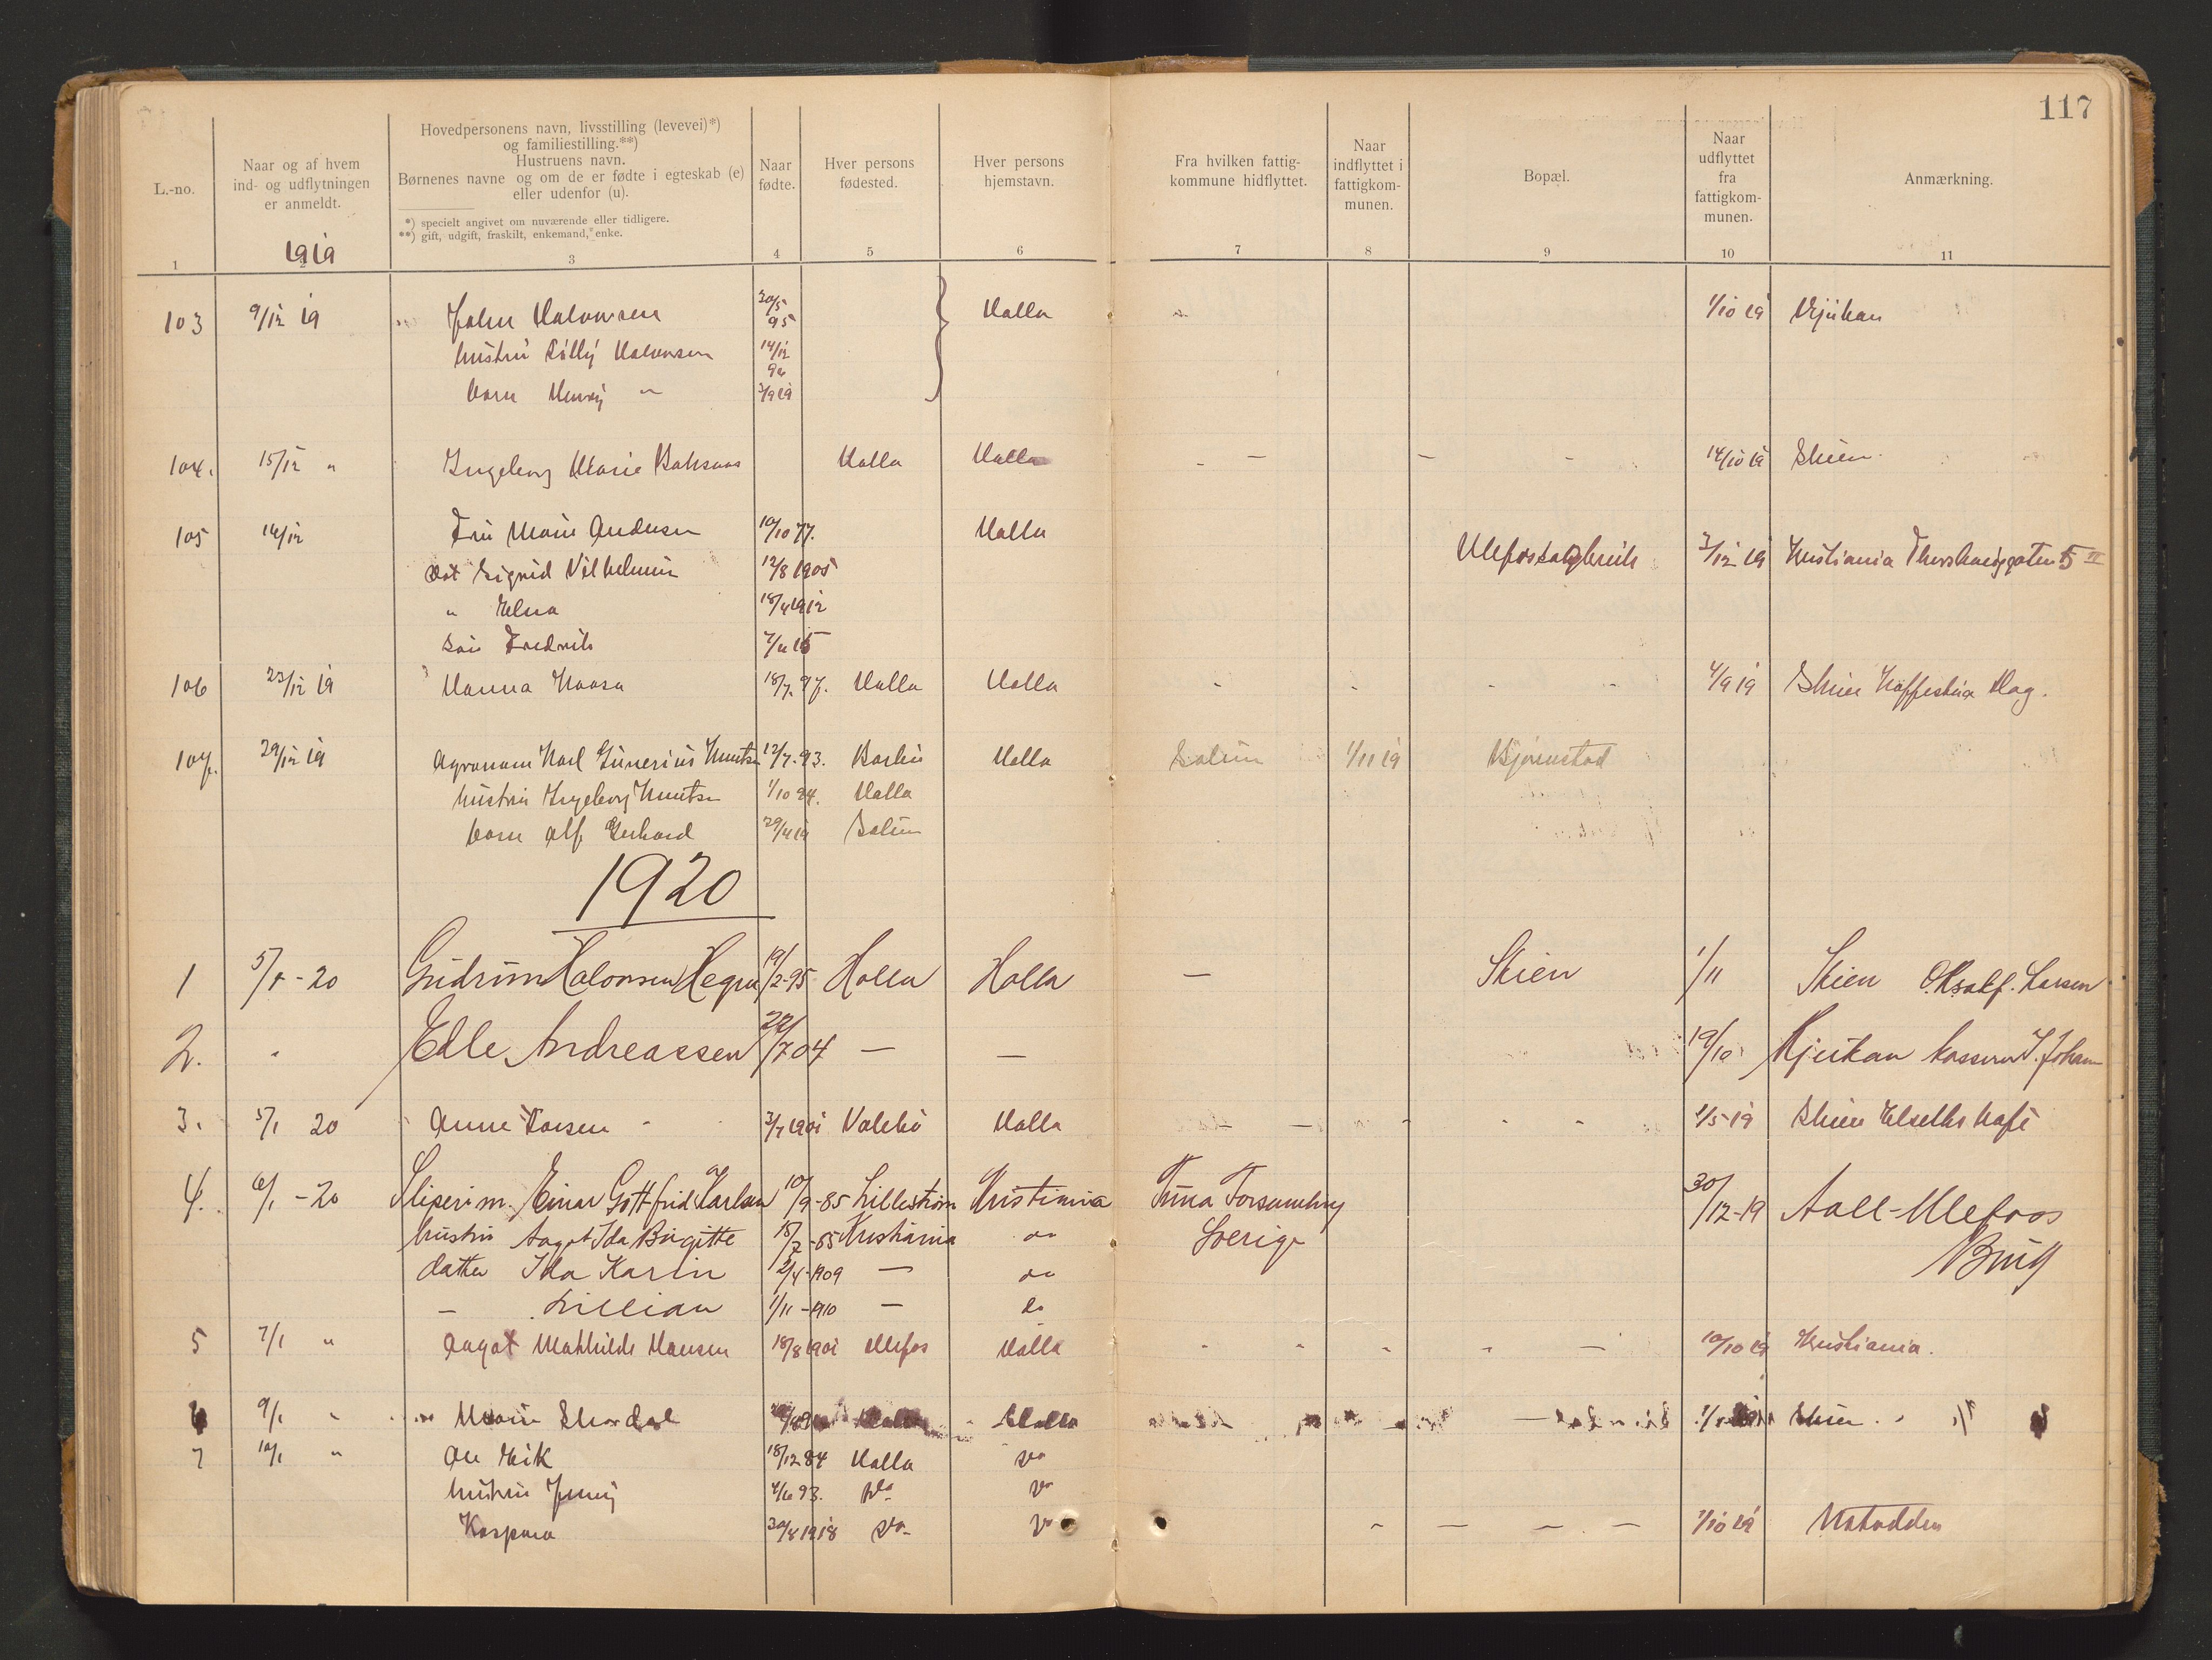 117
L.-no.
Naar og af hvem ind- og udflytningen er anmeldt.
Hovedpersonens navn, livsstilling (levevei)*) og familiestilling.**)
Hustruens navn.
Børnenes navne og om de er fødte i egteskab (e) eller udenfor (u).
*) specielt angivet om nuværende eller tidligere.
**) gift, ugift, fraskilt, enkemand, enke.
Naar fødte.
Hver persons fødested.
Hver persons hjemstavn.
Fra hvilken fattigkommune hidflyttet.
Naar indflyttet i fattigkommunen.
Bopæl.
Naar udflyttet fra fattigkommunen.
Anmærkning.
1919
1 3 4 5 6 7 8 9 10 11
103 9/12 19 John Halvorsen 30/5 95 Holla 1/10 19 Rjukan
hustru Halvorsen 14/12
barn Henry "
104. 15/12 " Ingeborg Marie Holla Holla - - - - 14/10 19 Skien.
105 16/12 Fru Marie Andersen 10/10 77. Holla Ulefos 3/12 19 Kristiania 5 II
dat Sigrid Vilhelmine 12/8 1905
" Elna 18/4 1912
Søn Fredrik
106 23/12 19 Hanna Kaasa 18/7. 97. Holla Holla - - - - 4/9 19 Skien
107. 29/12 19 Agronom Karl Gunerius Knutsen 12/7. 93. Holla Solum 1/11 19 Bjørnstad
hustru Ingeborg Knutsen 1/10 94. Holla
barn Alf Gerhard 29/4 19 Solum
1920
1 5/1 - 20 Gudrun Halvorsen Hegna 19/2-95 Holla Holla - Skien 1/11 Skien Larsen
2. " Edle Andreassen 29/7 04 - - 19/10 Rjukan
3. 5/1 20 Anne Larsen 3/7 1901 Holla 1/5-19 Skien Kafe
4. 6/1 - 20 Sliperim. Einar Gottfrid Karlsen 10/9-85 Lillestrøm Kristiania Forsamling 30/12-19 Aall-Ulefos
hustru Aagot Ida Birgitte 18/7-85 Kristiania do Sverige Brug
datter Ida Karin 2/4-1909 - do
- Lillian 1/11-1910 - do
5 7/1 " Aagot Mathilde Hansen 18/8 1901 Ulefos Holla - - - - - 10/10 19 Kristiania.
6 9/1 " Marie Holla Skien
7 10/1 " Ole Eik 18/12 84 Holla do
hustru Jenny 4/6 93. do do
Kaspara 30/8 1918 do do - - - - 1/10 19 Notodden